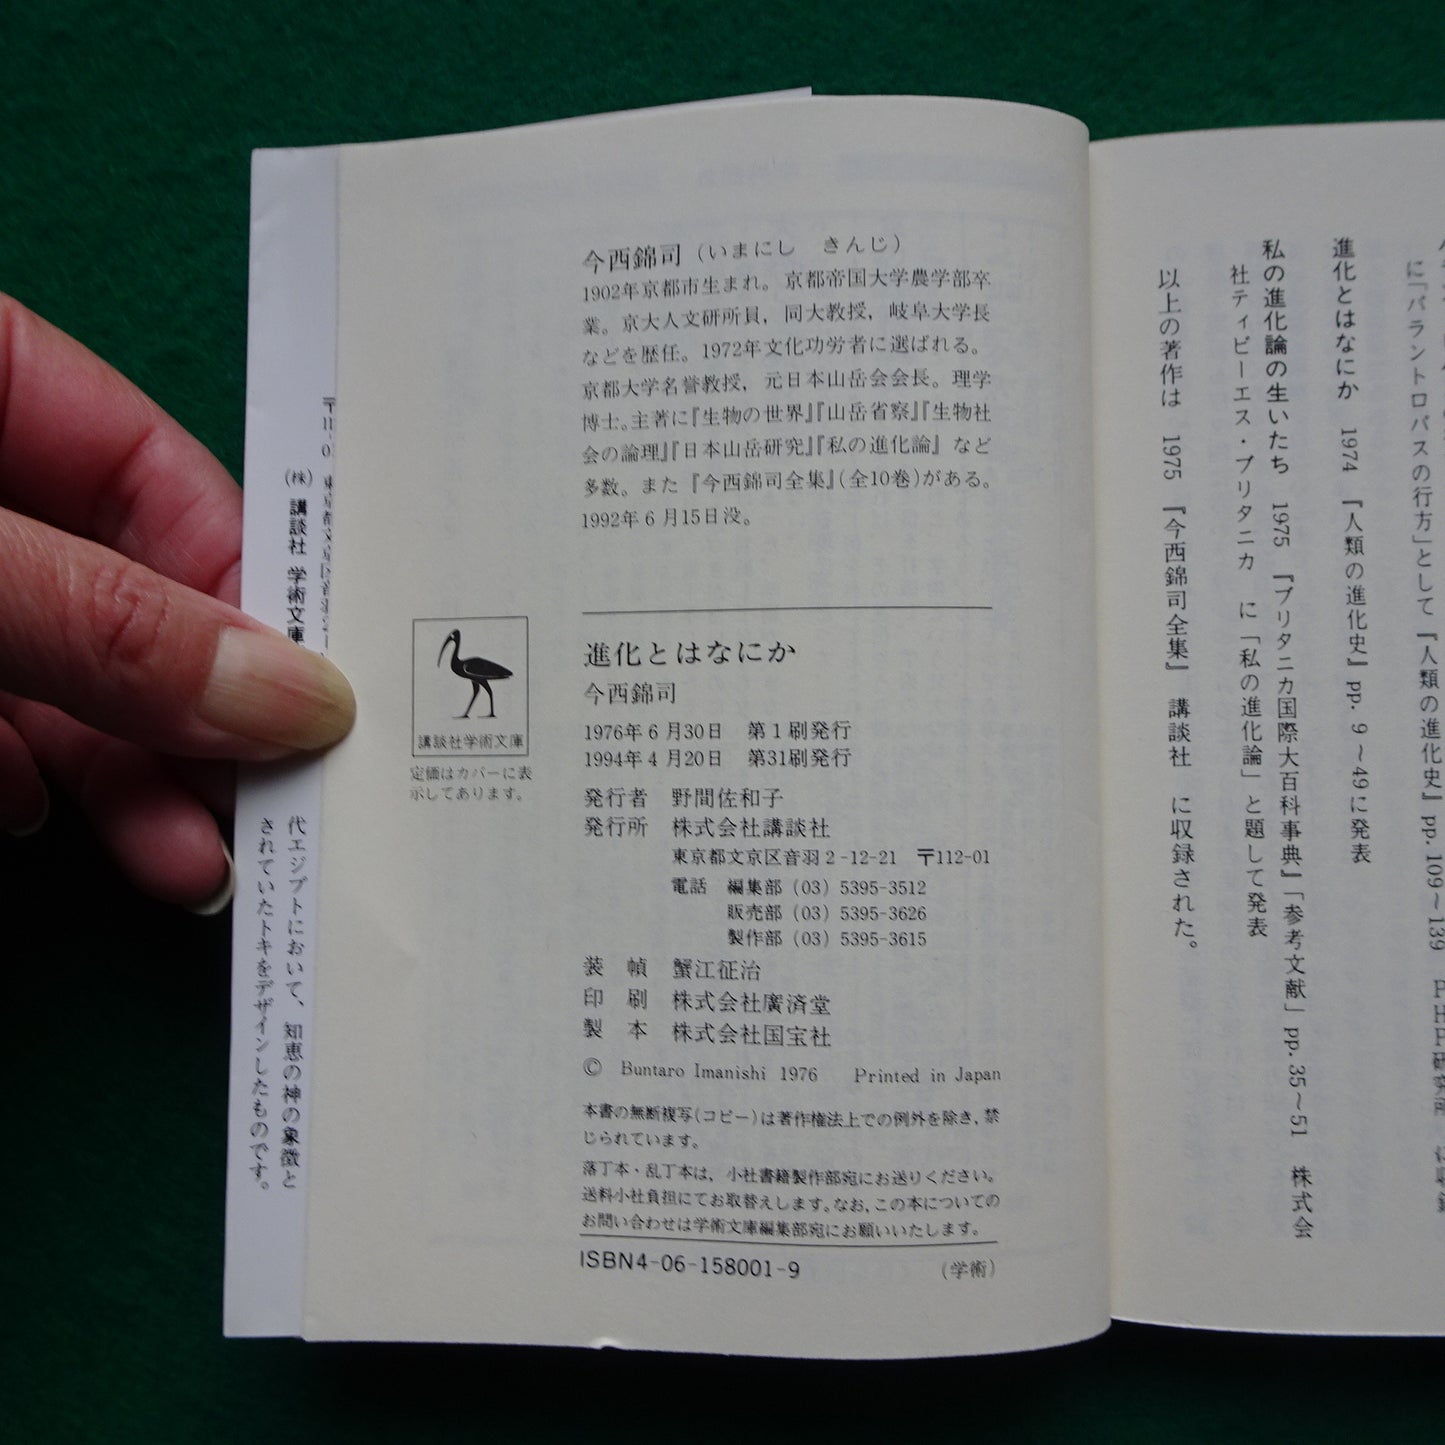 今西錦司（いまにし　きんじ）
1902年京都市生まれ。京都帝国大学農学部卒
業。京大人文研所員，同大教授，岐阜大学長
などを歴任。1972年文化功労者に選ばれる。
京都大学名誉教授，元日本山岳会会長。理学
博士。主著に『生物の世界』『山岳省察』『生物社
会の論理』『日本山岳研究』『私の進化論』など
多数。また『今西錦司全集』（全10巻）がある。
1992年6月15日没。
講談社学術文庫
定価はカバーに表
示してあります。
進化とはなにか
今西錦司
1976年6月30日　第1刷発行
1994年4月20日　第31刷発行
発行者　野間佐和子
発行所　株式会社講談社
東京都文京区音羽2-12-21　〒112-01
電話　編集部（03）5395-3512
販売部（03）5395-3626
製作部（03）5395-3615
装　幀　蟹江征治
印　刷　株式会社廣済堂
製　本　株式会社国宝社
© Buntaro Imanishi 1976　Printed in Japan
本書の無断複写（コピー）は著作権法上での例外を除き，禁
じられています。
落丁本・乱丁本は，小社書籍製作部宛にお送りください。
送料小社負担にてお取替えします。なお，この本についての
お問い合わせは学術文庫編集部宛にお願いいたします。
ISBN4-06-158001-9
（学術）
に「パラントロパスの行方」として『人類の進化史』pp. 109～139　PHP研究所
進化とはなにか　1974　『人類の進化史』pp. 9～49に発表
私の進化論の生いたち　1975　『ブリタニカ国際大百科事典』「参考文献」pp. 35～51　株式会
社ティビーエス・ブリタニカ　に「私の進化論」と題して発表
以上の著作は　1975　『今西錦司全集』　講談社　に収録された。
〒111-0　東京都文京区音羽
（株）講談社　学術文庫
代エジプトにおいて、知恵の神の象徴と
されていたトキをデザインしたものです。